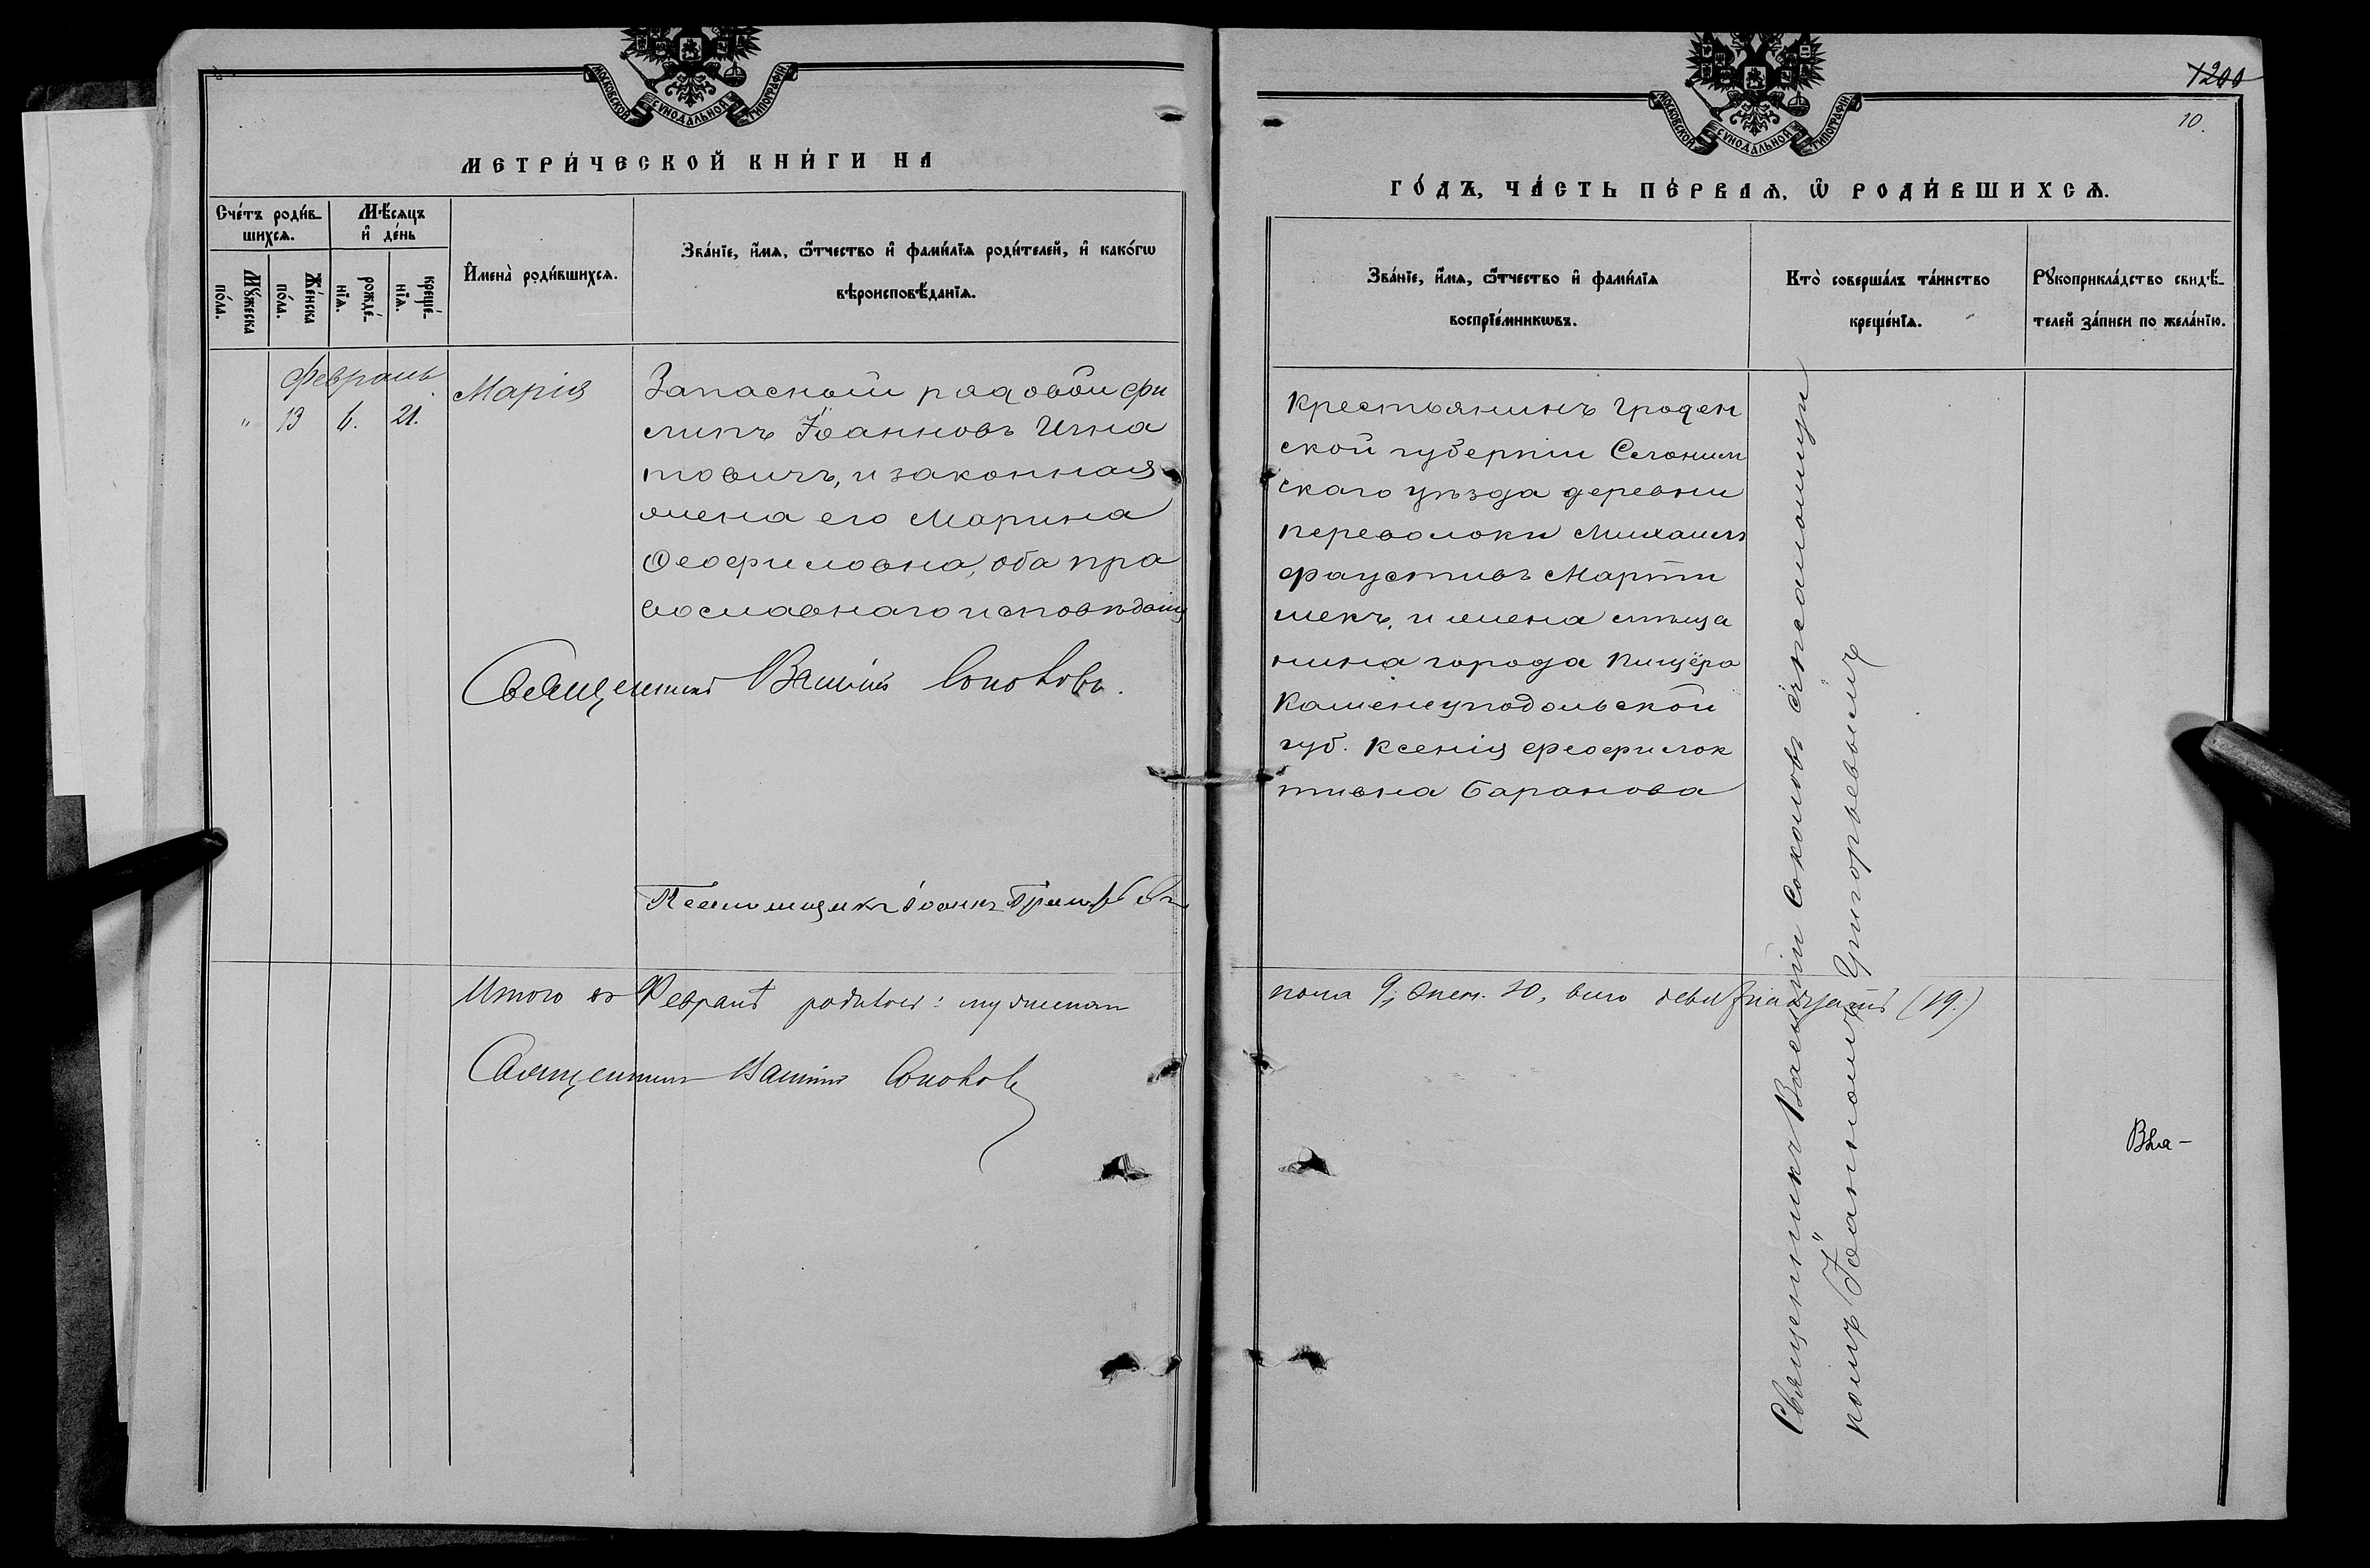 МОСКОВСКОЙ СУНОДАЛЬНОЙ ТИПОГРАФІИ
МЕТРИ́ЧЕСКОЙ КНИ́ГИ НА
Сче́тъ роди́в-
шихсѧ.
Мѣ́сѧцъ
и҆ де́нь
Мꙋ́жеска
по́ла.
Же́нска
по́ла.
рожде́-
нїѧ.
креще́-
нїѧ.
И҆мена̀ роди́вшихсѧ.
Зва́нїе, и҆́мѧ, ѻ҆́тчество и҆ фами́лїѧ роди́телей, и҆ како́гѡ
вѣроисповѣ́данїѧ.
Февраль
" 13 6. 21.
Марія
Запасный рядовой Фи
липъ Іоанновъ Игна
товичъ, и законная
жена его Марина
Ѳеофиловна, оба пра
вославнаго исповѣданія
Священникъ Василій Соколовъ.
Псаломщикъ Іоаннъ Григорьевъ
Итого въ Февралѣ родилось: мужескаго
Священникъ Василій Соколовъ
МОСКОВСКОЙ СУНОДАЛЬНОЙ ТИПОГРАФІИ
1200
10.
ГО́ДЪ, ЧА́СТЬ ПЕ́РВАѦ, Ѡ҆ РОДИ́ВШИХСѦ.
Зва́нїе, и҆́мѧ, ѻ҆́тчество и҆ фами́лїѧ
воспрїе́мникѡвъ.
Кто̀ соверша́лъ та́инство
креще́нїѧ.
Рꙋкоприкла́дство свидѣ́-
телей за́писи по жела́нїю.
Крестьянинъ Гроден
ской губерніи Слоним
скаго уѣзда деревни
Переволоки Михаилъ
Фаустивъ Марти
мекъ, и жена мѣща
нина города Пищера
Каменецподольской
губ. Ксенія Феофилок
тивна Баранова
Священникъ Василій Соколовъ съ псаломщи
комъ Іоанномъ Григорьевымъ
пола 9, женск. 10, всего девятнадцать (19.)
Вѣа-